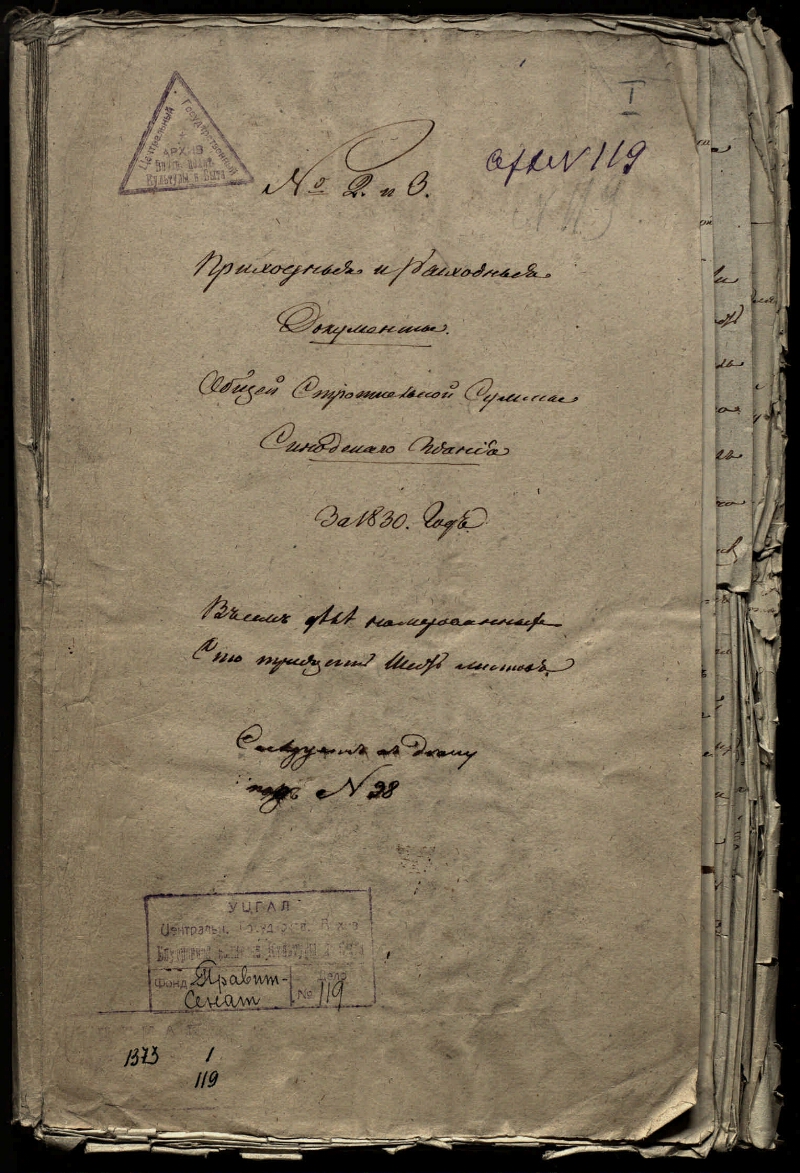 I
Центральный Государственный
АРХИВ
Культуры и Быта
№ 119
№ 2. и 3.
№ 119
Приходныя и Расходныя
Документы.
Общей Строительной Суммы
Синодскаго Зданія
За 1830. Годъ.
Въ семъ дѣлѣ номерованныхъ
Сто тридцать Шесть листовъ.
Слѣдуетъ къ Дѣлу
подъ № 28
УЦГАЛ
Центральн. Государств. Архив
Фонд Правит- Дело
Сенат № 119
1373 1
119